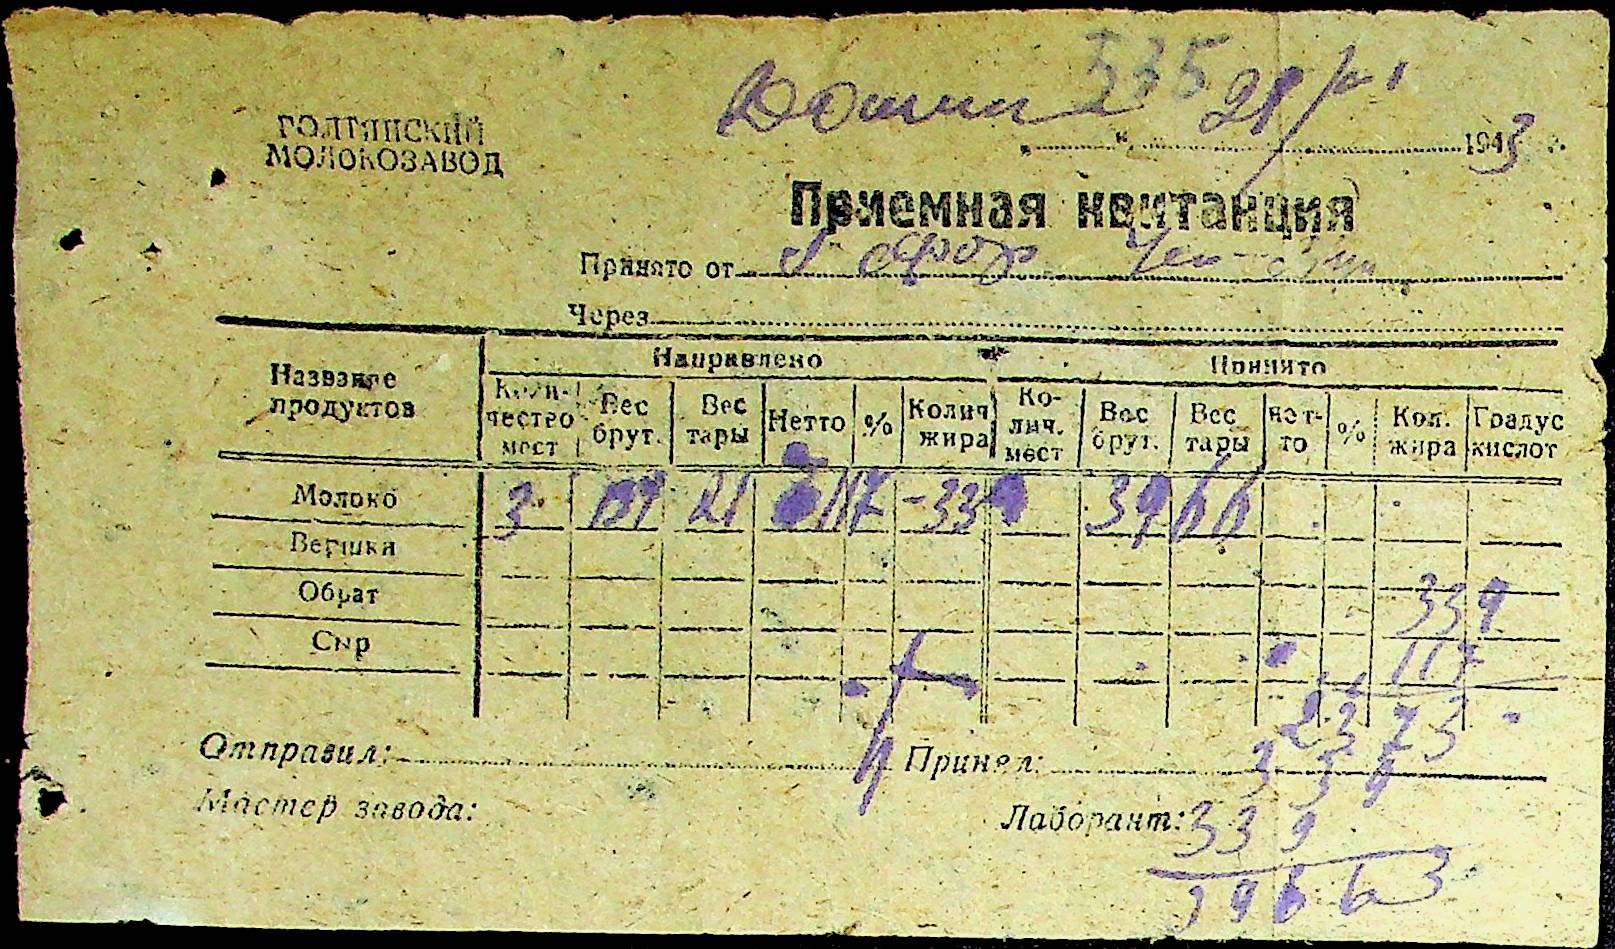 535
ГОЛТЯНСКИЙ
МОЛОКОЗАВОД
28/VI
" " 1943 г.
Приемная квитанция
Принято от
Через
Название продуктов Направлено Принято
Количество мест Вес брут. Вес тары Нетто % Колич жира Колич. мест Вес брут. Вес тары нет-то % Кол. жира Градус кислот
Молоко 3 139 21 117 -339 3966
Вершки
Обрат 339
Сыр 117
2373
Отправил: Принял: 339
Мастер завода: Лаборант: 339
39663